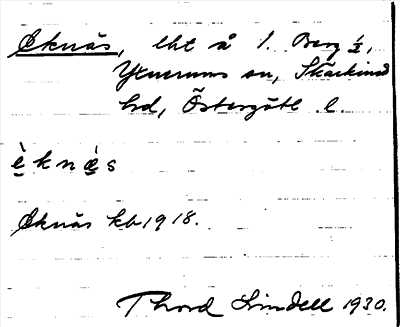 Eknäs, lht å 1. Berg 1/2,
Yxnerums sn, Skärkind
hd, Östergötl. l.
èknæ̀s
Eknäs kb 1918.
Thord Lindell 1930.